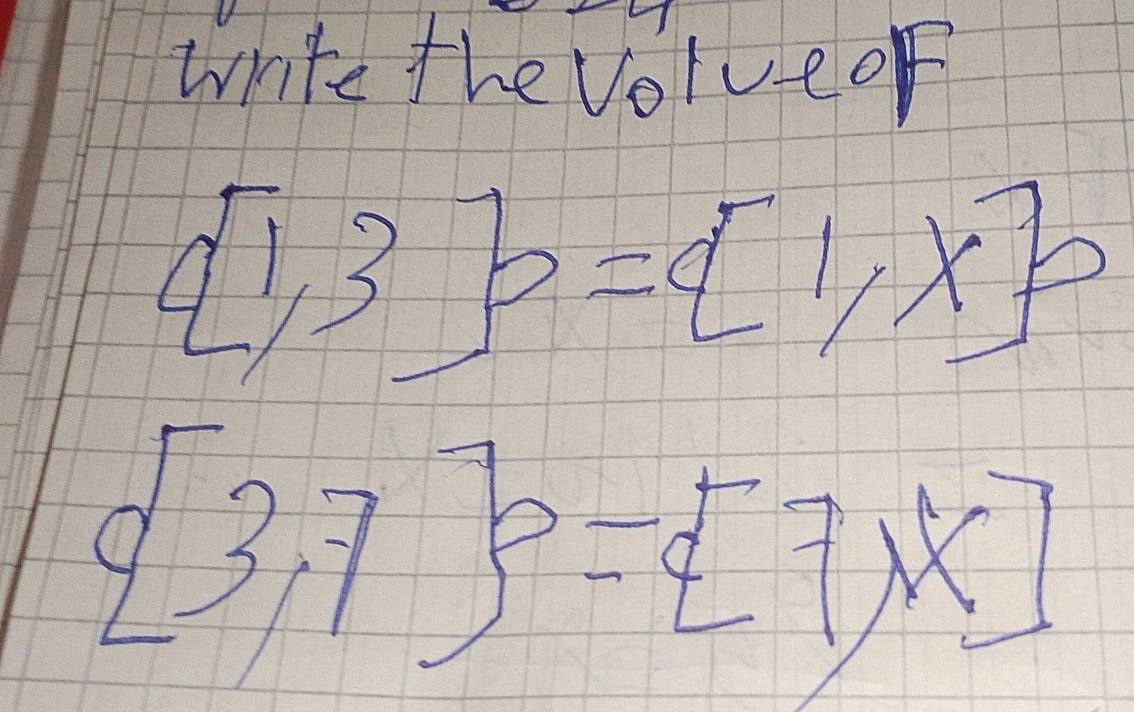 write the Volue of
{1,3} = {1,X}
{3,7} = {7,X}